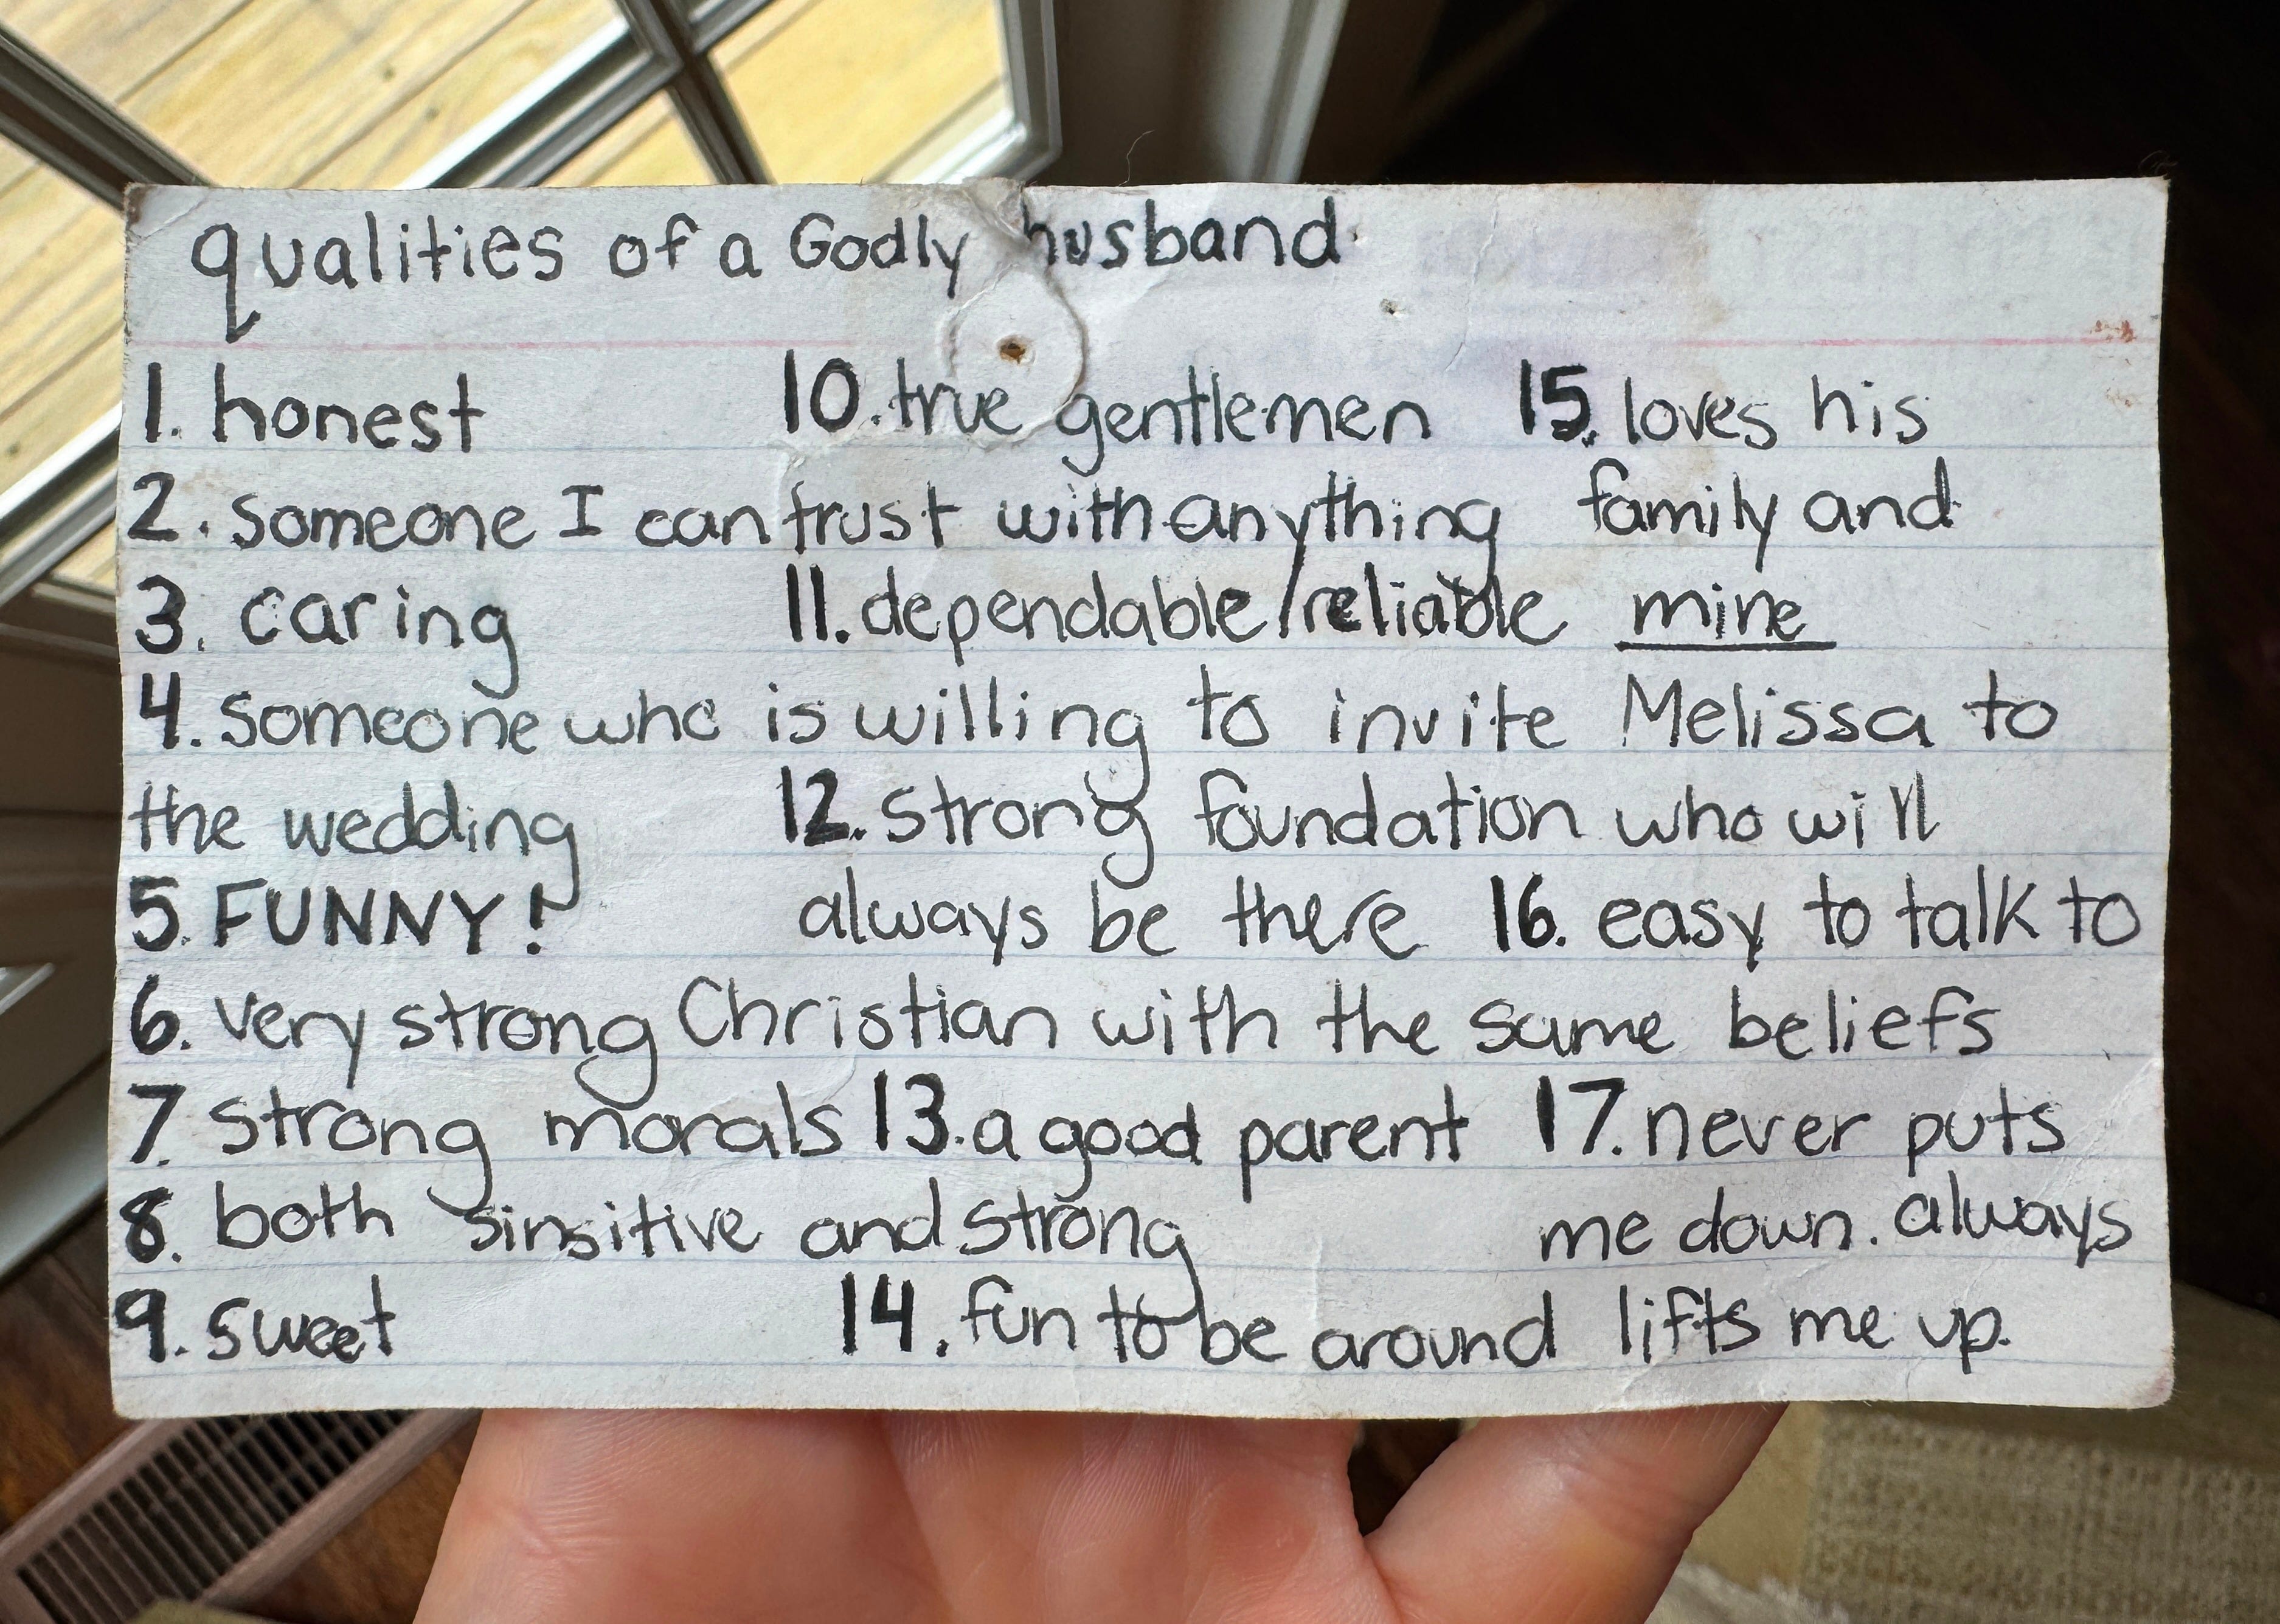 qualities of a Godly husband
1. honest
2. someone I can trust with anything
3. caring
4. someone who is willing to invite Melissa to
the wedding
5. FUNNY!
6. very strong Christian with the same beliefs
7. strong morals
8. both sinsitive and strong
9. sweet
10. true gentlemen
11. dependable/reliable
12. strong foundation who will
always be there
13. a good parent
14. fun to be around
15. loves his
family and
mine
16. easy to talk to
17. never puts
me down. always
lifts me up.